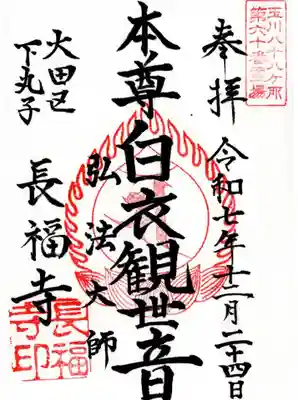 玉川八十八ケ所
第六十五番霊場
奉拝
令和七年十二月二十四日
本尊白衣観世音
弘法大師
大田区
下丸子
長福寺
長福
寺印